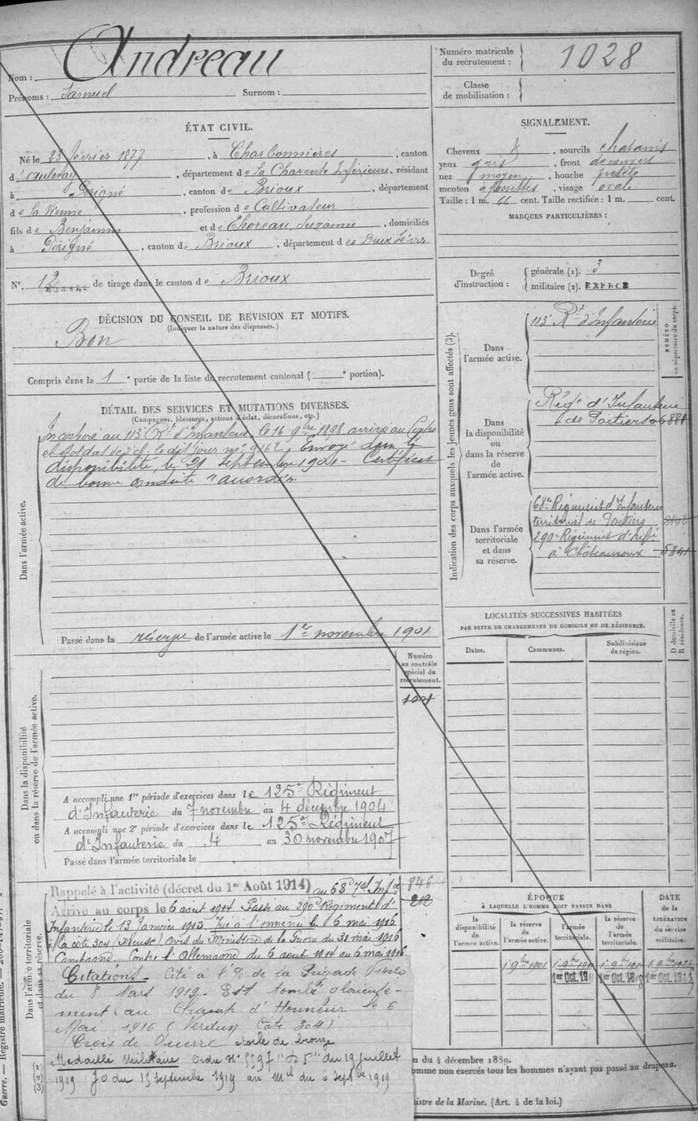 Nom : Andreau
Prénoms : Samuel Surnom :
Numéro matricule du recrutement : 1028
Classe de mobilisation :
ÉTAT CIVIL.
Né le 23 février 1877, à Charbonnières, canton
d'aulnay, département de la Charente Inférieure, résidant
à Périgné, canton de Brioux, département
de la Vienne, profession de Cultivateur
fils de Benjamin et de Choreau, Suzanne, domiciliés
à Périgné, canton de Brioux, département des Deux Sèvres
N° 12 de tirage dans le canton de Brioux
SIGNALEMENT.
Cheveux, sourcils chatains
yeux gris, front découvert
nez moyen, bouche petite
menton à fossettes, visage ovale
Taille : 1 m. 66 cent. Taille rectifiée : 1 m. cent.
MARQUES PARTICULIÈRES :
Degré d'instruction : générale (1). 3
militaire (2). EXERCÉ
DÉCISION DU CONSEIL DE REVISION ET MOTIFS.
(Indiquer la nature des dispenses.)
Bon
Compris dans la 1e partie de la liste du recrutement cantonal ( portion).
DÉTAIL DES SERVICES ET MUTATIONS DIVERSES.
(Campagnes, blessures, actions d'éclat, décorations, etc.)
Dans l'armée active.
Incorporé au 113e Rt d'Infanterie le 14 9bre 1898 arrivé au Corps
et soldat de 2e cl. le dit jour, Envoyé dans la
disponibilité le 21 septembre 1901 - Certificat
de bonne conduite "accordé"
Passé dans la réserve de l'armée active le 1er novembre 1901
Indication des corps auxquels les jeunes gens sont affectés (3).
NUMÉRO au répertoire du corps.
Dans l'armée active.
113e Rt d'Infanterie
Dans la disponibilité ou dans la réserve de l'armée active.
Régt d'Infanterie
de Poitiers
Dans l'armée territoriale et dans sa réserve.
68e Régiment d'Infanterie
territorial de Poitiers
290e Régiment d'Infie
à Châteauroux 5841
LOCALITÉS SUCCESSIVES HABITÉES
PAR SUITE DE CHANGEMENTS DE DOMICILE OU DE RÉSIDENCE.
Dates. Communes. Subdivisions de région. D domicile ou R résidence.
Numéro au contrôle spécial du recrutement.
Dans la disponibilité ou dans la réserve de l'armée active.
A accompli une 1re période d'exercices dans le 125e Régiment
d'Infanterie du 7 novembre au 4 décembre 1904
A accompli une 2e période d'exercices dans le 125e Régiment
d'Infanterie du 4 au 30 novembre 1907
Passé dans l'armée territoriale le
Dans l'armée territoriale et dans sa réserve.
Rappelé à l'activité (décret du 1er Août 1914) au 68e Tal Infie
Arrivé au corps le 6 aout 1914 Passé au 290e Régiment d'
Infanterie le 13 janvier 1915. Tué à l'ennemi le 6 mai 1916
à la cote 304 (Meuse) avis du Ministère de la Guerre du 31 mai 1916
Campagne. Contre l'Allemagne du 6 aout 1914 au 6 mai 1916.
Citations - Cité à l'O. de la Brigade
du 8 Mars 1919 - Est tombé glorieuse-
ment au Champ d'Honneur le 6
Mai 1916 (Verdun Côte 304)
Croix de Guerre étoile de bronze
Médaille Militaire Ordre N° 5597 "D5" du 19 juillet
1919 JO du 15 septembre 1919
ÉPOQUE
À LAQUELLE L'HOMME DOIT PASSER DANS
la disponibilité de l'armée active. la réserve de l'armée active. l'armée territoriale. la réserve de l'armée territoriale.
DATE de la LIBÉRATION du service militaire.
1er Oct. 1er Oct.
on du 4 décembre 1889.
omme non exercés tous les hommes n'ayant pas passé au drapeau.
istre de la Marine. (Art. 4 de la loi.)